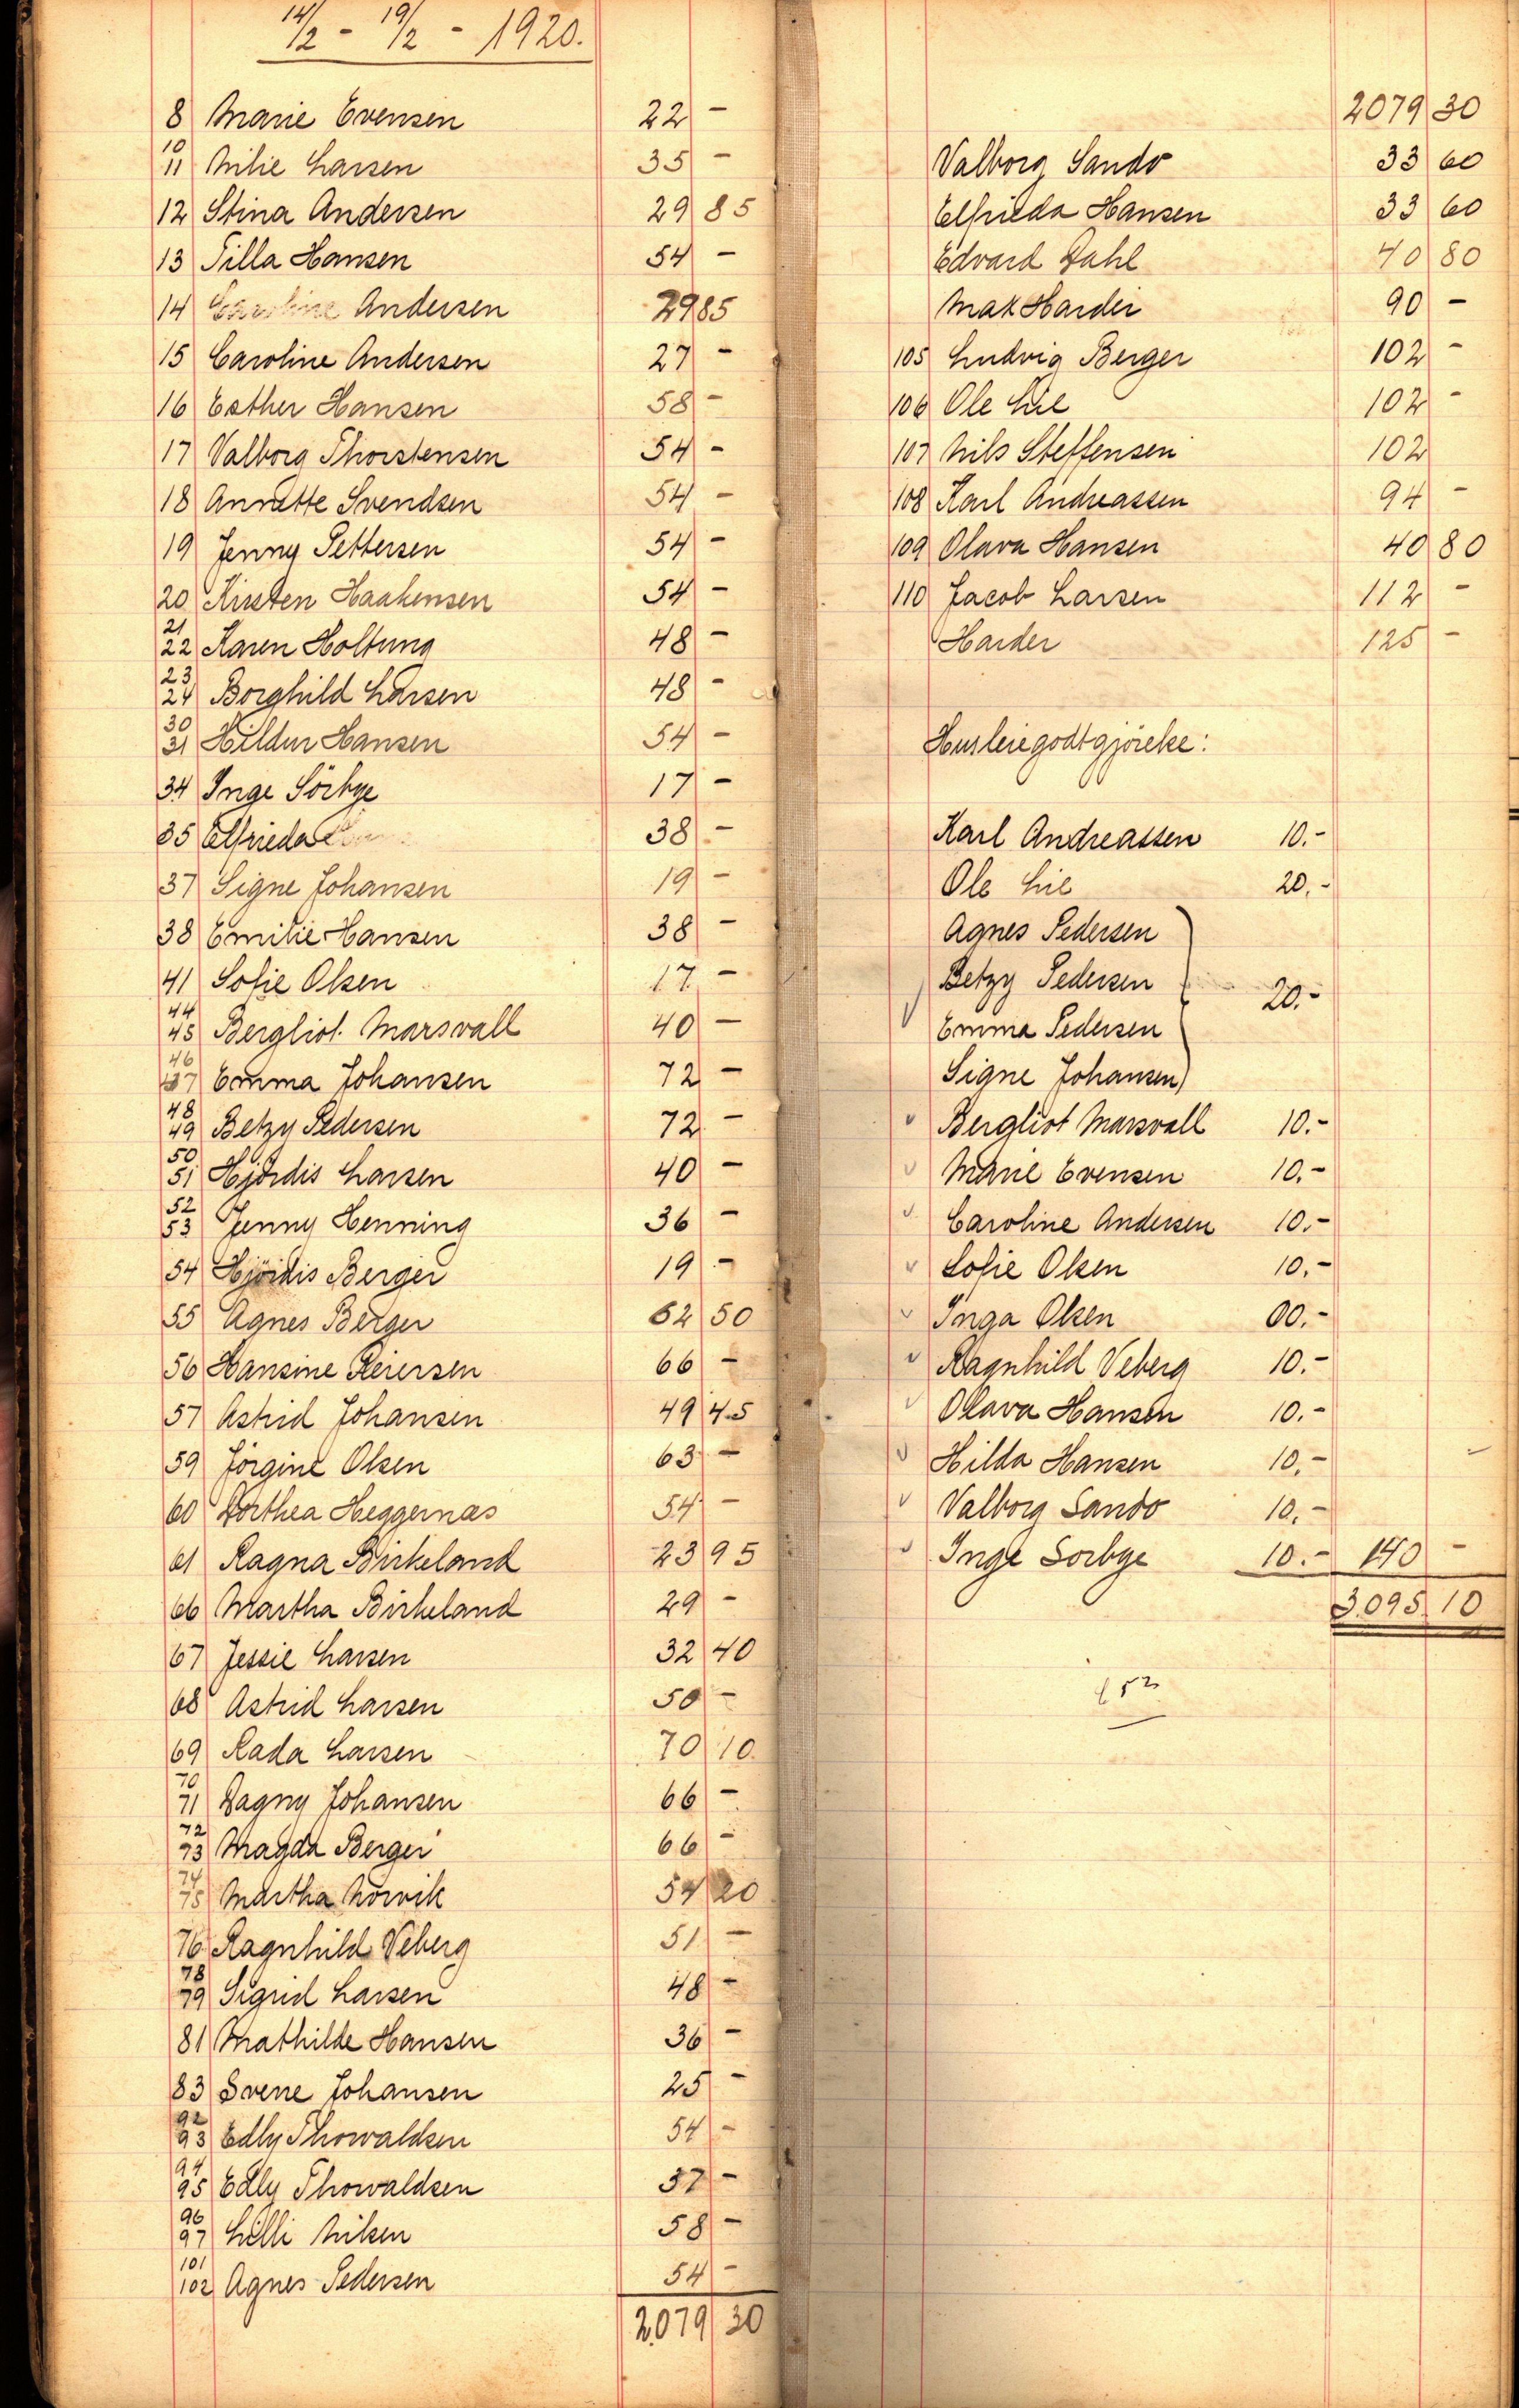 14/2 - 19/2 - 1920.
8 Marie Evensen 22 -
10
11 Milie Larsen 35 -
12 Stina Andersen 29 85
13 Tilla Hansen 54 -
14 Caroline Andersen 29 85
15 Caroline Andersen 27 -
16 Esther Hansen 58 -
17 Valborg Thorstensen 54 -
18 Annette Svendsen 54 -
19 Jenny Pettersen 54 -
20 Kirsten Haakensen 54 -
21
22 Karen Holtung 48 -
23
24 Borghild Larsen 48 -
30
31 Hildur Hansen 54 -
34 Inge Sörbye 17 -
35 Elfrieda 38 -
37 Signe Johansen 19 -
38 Emilie Hansen 38 -
41 Sofie Olsen 17 -
44
45 Bergliot Marsvall 40 -
46
47 Emma Johansen 72 -
48
49 Betzy Pedersen 72 -
50
51 Hjördis Larsen 40 -
52
53 Jenny Henning 36 -
54 Hjördis Berger 19 -
55 Agnes Berger 62 50
56 Hansine Reiersen 66 -
57 Astrid Johansen 49 45
59 Jörgine Olsen 63 -
60 Dorthea Heggernæs 54 -
61 Ragna Birkeland 23 95
66 Martha Birkeland 29 -
67 Jessie Larsen 32 40
68 Astrid Larsen 50 -
69 Rada Larsen 70 10
70
71 Dagny Johansen 66 -
72
73 Magda Berger 66 -
74
75 Martha Norvik 54 20
76 Ragnhild Veberg 51 -
78
79 Sigrid Larsen 48 -
81 Mathilde Hansen 36 -
83 Svene Johansen 25 -
92
93 Edly Thowaldsen 54 -
94
95 Edly Thowaldsen 37 -
96
97 Lilli Nilsen 58 -
101
102 Agnes Pedersen 54 -
2079 30
2079 30
Valborg Sando 33 60
Elfrieda Hansen 33 60
Edvard Dahl 40 80
Max Harder 90 -
105 Ludvig Berger 102 -
106 Ole Lie 102 -
107 Nils Steffensen 102
108 Karl Andreassen 94 -
109 Olava Hansen 40 80
110 Jacob Larsen 112 -
Harder 125 -
Husleiegodtgjörelse:
Karl Andreassen 10.-
Ole Lie 20.-
Agnes Pedersen
Betzy Pedersen 20.-
Emma Pedersen
Signe Johansen
Bergliot Marsvall 10.-
Marie Evensen 10.-
Caroline Andersen 10.-
Sofie Olsen 10.-
Inga Olsen 00.-
Ragnhild Veberg 10.-
Olava Hansen 10.-
Hilda Hansen 10.-
Valborg Sando 10.-
Inge Sorbye 10.- 140 -
3.095 10